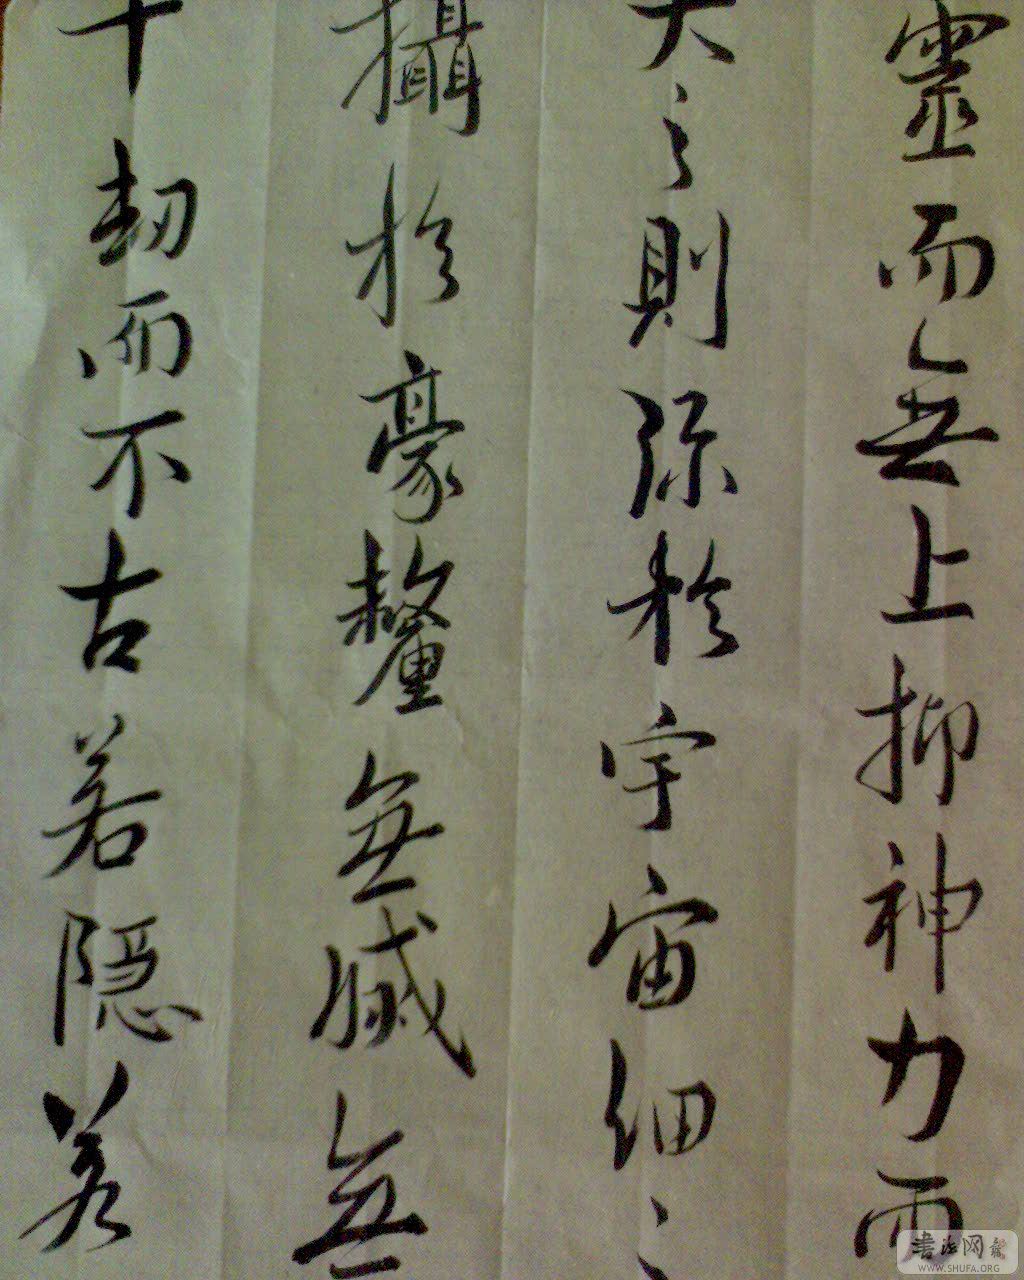 靈而無上抑神力而
大之則弥於宇宙細之
攝於豪釐無滅無
千劫而不古若隐若
書法网
WWW.SHUFA.ORG